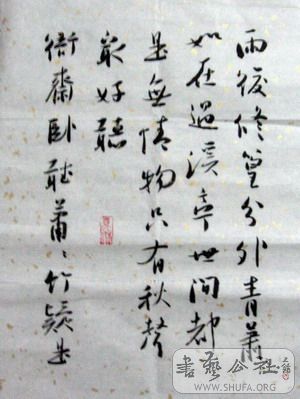 雨後修篁分外青蕭
如在過溪亭世間都
是無情物只有秋聲
最好聽
衙齋臥聽蕭〻竹疑是
書藝公社
WWW.SHUFA.ORG